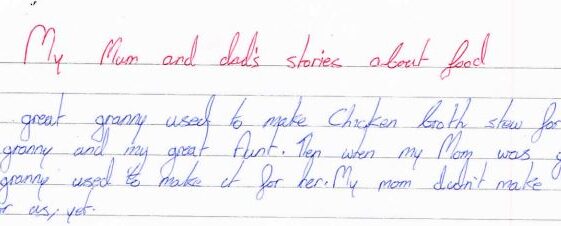 My Mum and dad's stories about food
great granny used to make Chicken broth stew for
granny and my great Aunt. Then when my Mom was
granny used to make it for her. My mom dudn't make
r us, yet.